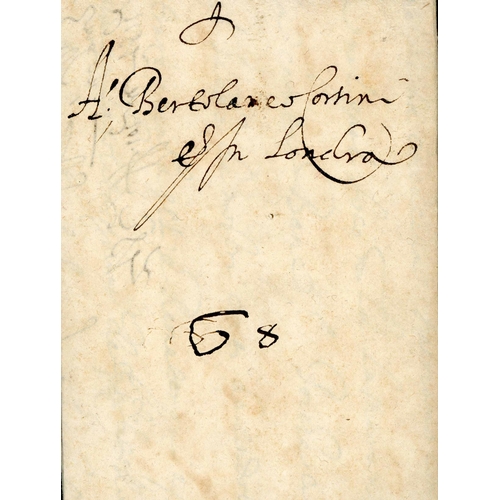 A. Bertolameo Corsini
In Londra
8